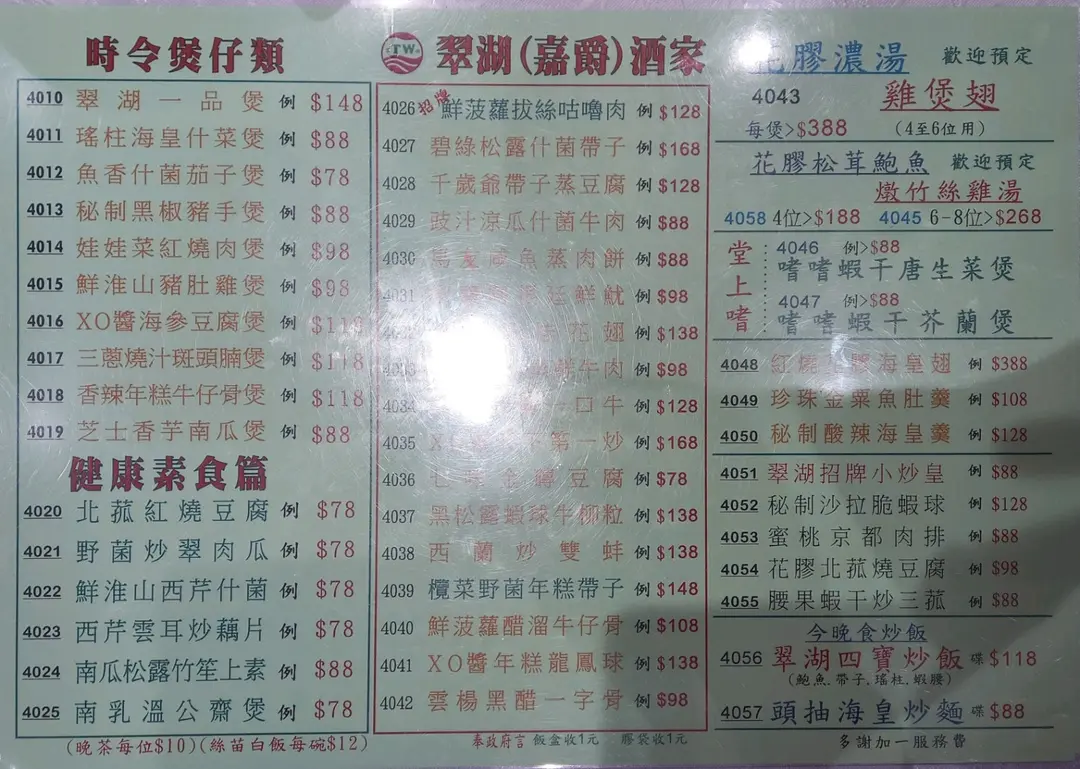 時令煲仔類
4010 翠湖一品煲 例 $148
4011 瑤柱海皇什菜煲 例 $88
4012 魚香什菌茄子煲 例 $78
4013 秘制黑椒豬手煲 例 $88
4014 娃娃菜紅燒肉煲 例 $98
4015 鮮淮山豬肚雞煲 例 $98
4016 XO醬海參豆腐煲 例
4017 三蔥燒汁斑頭腩煲 例 $118
4018 香辣年糕牛仔骨煲 例 $118
4019 芝士香芋南瓜煲 例 $88
健康素食篇
4020 北菰紅燒豆腐 例 $78
4021 野菌炒翠肉瓜 例 $78
4022 鮮淮山西芹什菌 例 $78
4023 西芹雲耳炒藕片 例 $78
4024 南瓜松露竹笙上素 例 $88
4025 南乳溫公齋煲 例 $78
(晚茶每位$10)(絲苗白飯每碗$12)
TW 翠湖(嘉爵)酒家
4026 招牌 鮮菠蘿拔絲咕嚕肉 例 $128
4027 碧綠松露什菌帶子 例 $168
4028 千歲爺帶子蒸豆腐 例 $128
4029 豉汁涼瓜什菌牛肉 例 $88
4030 魚蒸肉餅 例 $88
4031 鮮魷 例 $98
翅 例 $138
牛肉 例 $98
4034 一口牛 例 $128
4035 第一炒 例 $168
4036 豆腐 例 $78
4037 黑松露蝦球牛柳粒 例 $138
4038 西蘭炒雙蚌 例 $138
4039 欖菜野菌年糕帶子 例 $148
4040 鮮菠蘿醋溜牛仔骨 例 $108
4041 XO醬年糕龍鳳球 例 $138
4042 雲楊黑醋一字骨 例 $98
奉政府言 飯盒收1元 膠袋收1元
花膠濃湯 歡迎預定
4043 雞煲翅
每煲>$388 (4至6位用)
花膠松茸鮑魚 歡迎預定
燉竹絲雞湯
4058 4位>$188 4045 6-8位>$268
堂上嗜
4046 例>$88
嗜嗜蝦干唐生菜煲
4047 例>$88
嗜嗜蝦干芥蘭煲
4048 紅燒花膠海皇翅 例 $388
4049 珍珠金粟魚肚羹 例 $108
4050 秘制酸辣海皇羹 例 $128
4051 翠湖招牌小炒皇 例 $88
4052 秘制沙拉脆蝦球 例 $128
4053 蜜桃京都肉排 例 $88
4054 花膠北菰燒豆腐 例 $98
4055 腰果蝦干炒三菰 例 $88
今晚食炒飯
4056 翠湖四寶炒飯 碟 $118
(鮑魚.帶子.瑤柱.蝦腰)
4057 頭抽海皇炒麵 碟 $88
多謝加一服務費